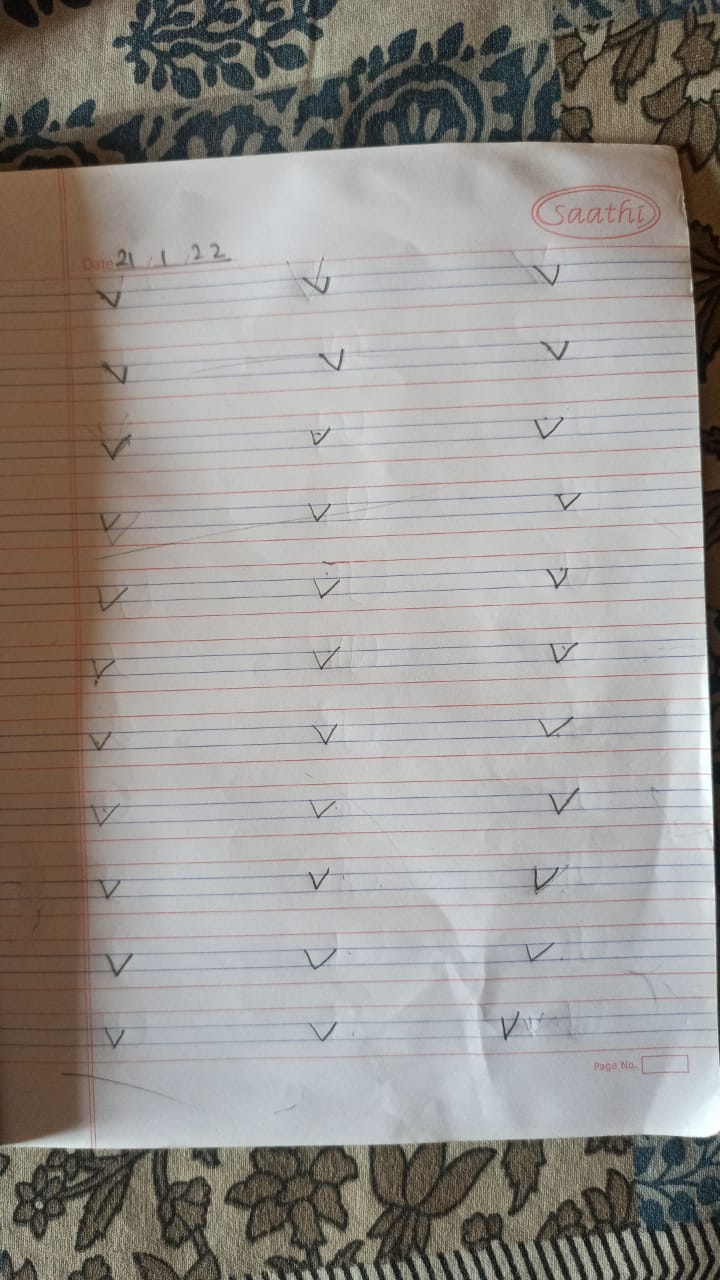 Saathi
Date 21 / 1 / 22
v v v
v v v
v v v
v v v
v v v
v v v
v v v
v v v
v v v
v v v
v v v
Page No.